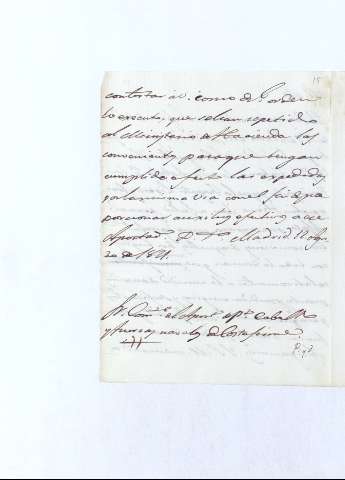 15
contestar á V. como de Rl. orden
lo executo, que se han repetido
al Ministerio de Hacienda las
convenientes para que tengan
cumplido efecto las expedidas
por la misma via con el fin de pro
porcionar auxilios efectivos a ese
Apostadº. Madrid 12 de
de 1821.
Sr. Comte. del Apostº. de Pto. Cabello
y fuerzas navales de Costa firme.